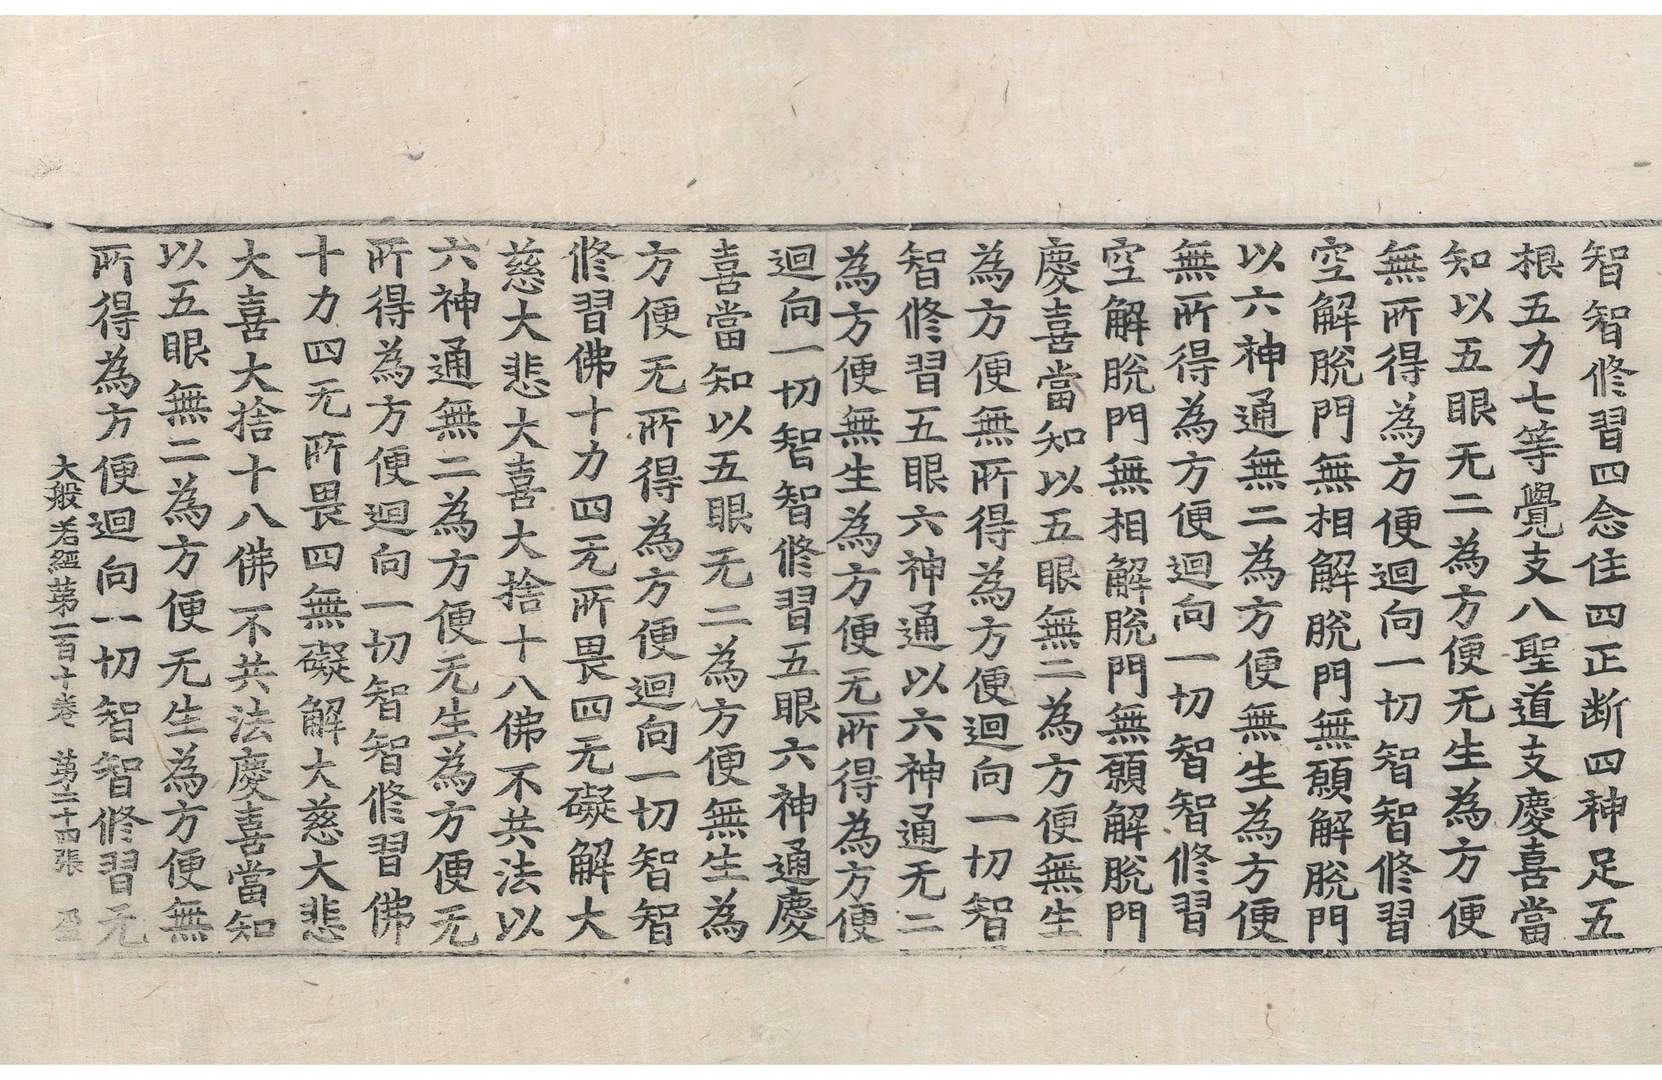 智智修習四念住四正断四神足五
根五力七等覺支八聖道支慶喜當
知以五眼无二為方便无生為方便
無所得為方便迴向一切智智修習
空解脫門無相解脫門無願解脫門
以六神通無二為方便無生為方便
無所得為方便迴向一切智智修習
空解脫門無相解脫門無願解脫門
慶喜當知以五眼無二為方便無生
為方便無所得為方便迴向一切智
智修習五眼六神通以六神通无二
為方便無生為方便无所得為方便
迴向一切智智修習五眼六神通慶
喜當知以五眼无二為方便無生為
方便无所得為方便迴向一切智智
修習佛十力四无所畏四无礙解大
慈大悲大喜大捨十八佛不共法以
六神通無二為方便无生為方便无
所得為方便迴向一切智智修習佛
十力四无所畏四無礙解大慈大悲
大喜大捨十八佛不共法慶喜當知
以五眼無二為方便无生為方便無
所得為方便迴向一切智智修習无
大般若經第一百十卷 第二十四張